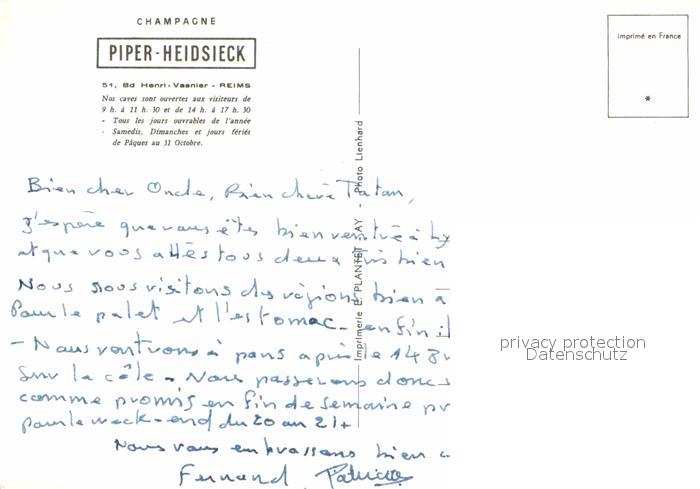 CHAMPAGNE
PIPER-HEIDSIECK
51, Bd Henri-Vasnier - REIMS
Nos caves sont ouvertes aux visiteurs de
9 h. à 11 h. 30 et de 14 h. à 17 h. 30
- Tous les jours ouvrables de l'année
- Samedis, Dimanches et jours fériés
de Pâques au 31 Octobre.
imprimé en France
*
Imprimerie E. PLANTET - AY - Photo Lienhard
Bien cher Oncle, Bien chère Tatan,
J'espère que vous êtes bien rentré à Ly
et que vous allés tous deux très bien
Nous nous visitons des régions bien à
Pour le palet et l'estomac - enfin il
- Nous rentrons à paris après le 14
Sur la côte - Nous passerons donc
comme promis en fin de semaine
pour le week-end du 20 au 21
Nous vous embrassons bien
Fernand Patricia
privacy protection
Datenschutz